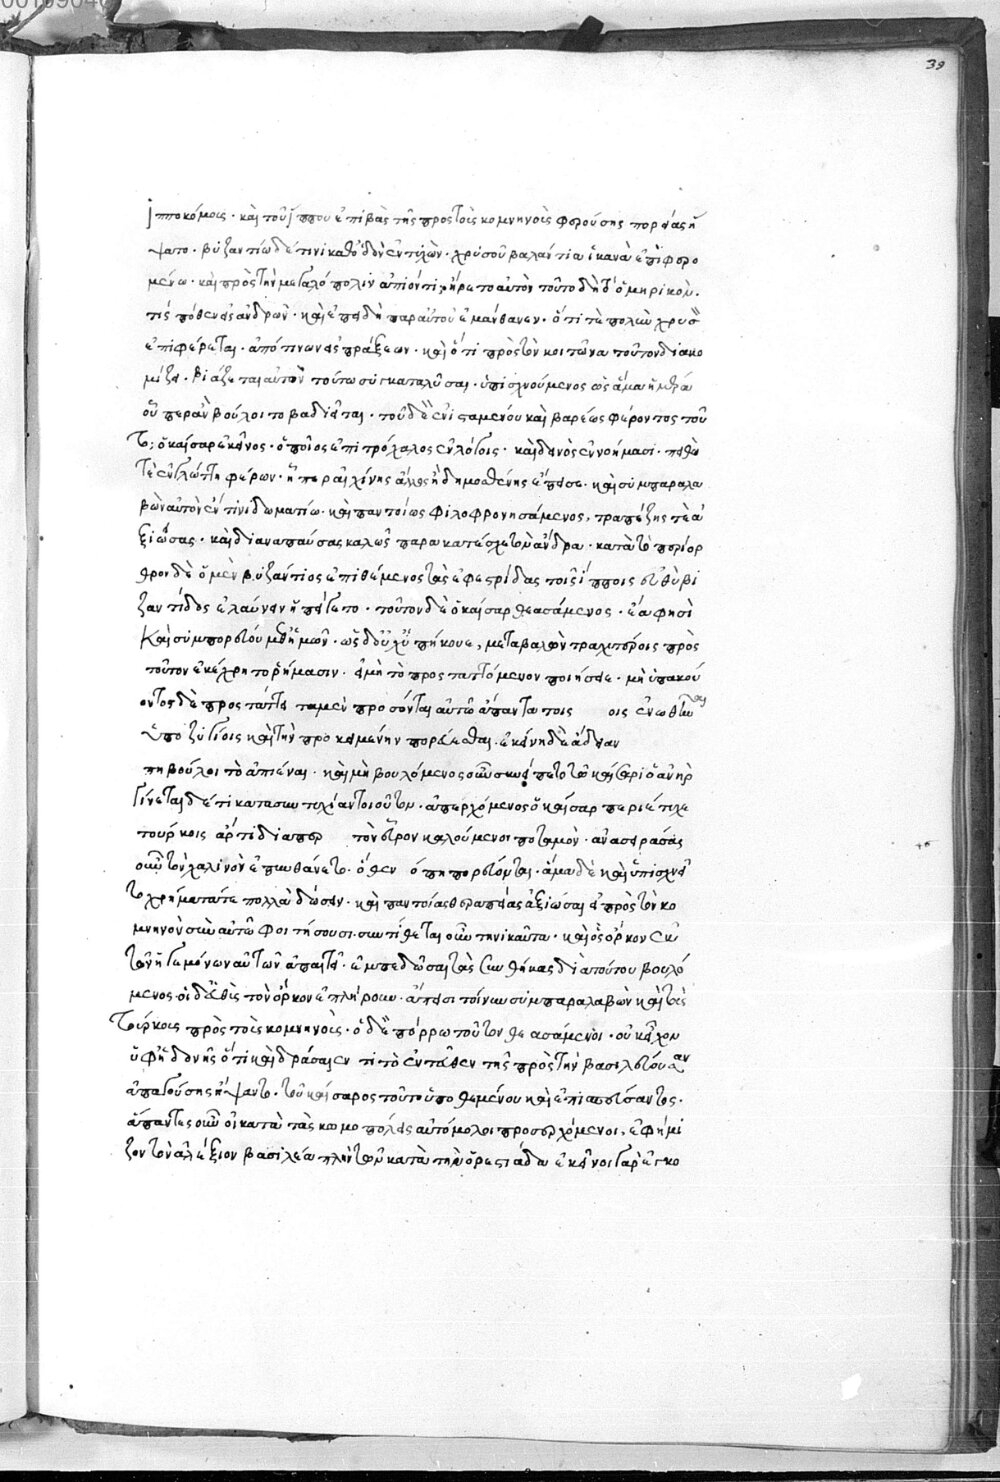 39
ἱπποκόμοις· καὶ τοῦ ἵππου ἐπιβὰς τῆς πρὸς τοὺς κομνηνοὺς φερούσης πορείας ἥ
ψατο· βυζαντίω δέ τινι καθ' ὁδὸν ἐντυχὼν· χρυσοῦ βαλάντια ἱκανὰ ἐπιφερο
μένω· καὶ πρὸς τὴν μεγαλόπολιν ἀπιόντι, ἤρετο αὐτὸν τοῦτο δὴ τ' ὁμηρικὸν·
τίς πόθεν εἶς ἀνδρῶν· καὶ ἐπειδὴ παρ' αὐτοῦ ἐμάνθανεν· ὅτι τε πολὺν χρυσὸν
ἐπιφέρεται· ἀπό τινων εἰσπράξεων· καὶ ὅτι πρὸς τὸν κοιτῶνα τοῦτον διακο
μίζει· βιάζεται αὐτὸν τούτω συγκαταλῦσαι· ὑπισχνούμενος ὡς ἅμα ἡμέρα
οὗπερ ἂν βούλοιτο βαδιεῖται· τοῦ δὲ ἐνισταμένου καὶ βαρέως φέροντος τοῦ
το· ὁ καῖσαρ ἐκεῖνος· ὁποῖος ἐπιτρόχαλος ἐν λόγοις· καὶ δεινὸς ἐν νοήμασι· πειθώ
τε ἐν γλώττη φέρων· ἥπερ αἰσχίνης ἄλλος ἢ δημοσθένης ἔπεισε· καὶ συμπαραλα
βὼν αὐτὸν ἔν τινι δωματίω· καὶ παντοίως φιλοφρονησάμενος, τραπέζης τε ἀ
ξιώσας· καὶ διαναπαύσας καλῶς παρακατέσχε τὸν ἄνδρα· κατὰ τὸ περίορ
θρον δὲ ὁ μὲν βυζάντιος ἐπιθέμενος τὰς ἐφεστρίδας τοῖς ἵπποις εὐθὺ βυ
ζαντίδος ἐλαύνειν ἠπείγετο· τοῦτον δὲ ὁ καῖσαρ θεασάμενος· ἔα φησὶ
καὶ συμπορεύου μεθ' ἡμῶν· ὡς δ' οὐχ ὑπήκουε, μεταβαλὼν τραχυτέροις πρὸς
τοῦτον ἐκέχρητο ῥήμασιν· εἰ μὴ τὸ προσταττόμενον ποιήσειε· μὴ ὑπακού
οντος δὲ προστάττει τἀμὲν προσόντα αὐτῶ ἅπαντα τοῖς οις ἑνωθῆναι
ὑποζυγίοις καὶ τὴν προκειμένην πορεύεσθαι· ἐκείνη δὲ ἄδειαν
πη βούλοιτο ἀπιέναι· καὶ μὴ βουλόμενος οὖν συνείπετο τῶ καίσαρι ὁ ἀνὴρ
γίνεται δέ τι κατὰ συντυχίαν τοιοῦτον· ἀπερχόμενος ὁ καῖσαρ περιέτυχε
τούρκοις ἄρτι διαπερ τὸν εὗρον καλούμενοι ποταμόν· ἀνασειράσας
οὖν τὸν χαλινὸν ἐπυνθάνετο· ὅθεν ὅπη πορεύονται· ἅμα δὲ καὶ ὑπισχνεῖ
το χρήματά τε πολλὰ δώσειν· καὶ παντοίας θεραπείας ἀξιῶσαι εἰ πρὸς τὸν κο
μνηνὸν σὺν αὐτῶ φοιτήσουσι· συντίθεται οὖν τηνικαῦτα· καὶ ὃς ὅρκον ἐκ
τῶν ἡγεμόνων αὐτῶν ἀπαιτεῖ· ἐμπεδῶσαι τὰς συνθήκας διὰ τούτου βουλό
μενος· οἱ δ' εὐθὺς τὸν ὅρκον ἐπλήρουν· ἄπεισι τοίνυν συμπαραλαβὼν καὶ τοὺς
τούρκους πρὸς τοὺς κομνηνοὺς· οἱ δὲ πόρρω τοῦτον θεασάμενοι· οὐκ εἶχον
ὑφ' ἡδονῆς ὅ τι καὶ δράσαιεν τί τὸ ἐντεῦθεν τῆς πρὸς τὴν βασιλεύουσαν
ἀπαγούσης ἥψαντο· τοῦ καίσαρος τοῦτο ὑποθεμένου καὶ ἐπισπεύσαντος·
ἅπαντες οὖν οἱ κατὰ τὰς κωμοπόλεις αὐτόμολοι προσερχόμενοι, εὐφήμι
ζον τὸν ἀλέξιον βασιλέα πλὴν τῶν κατὰ τὴν ὀρεστιάδα ἐκεῖνοι γὰρ ἐγκο